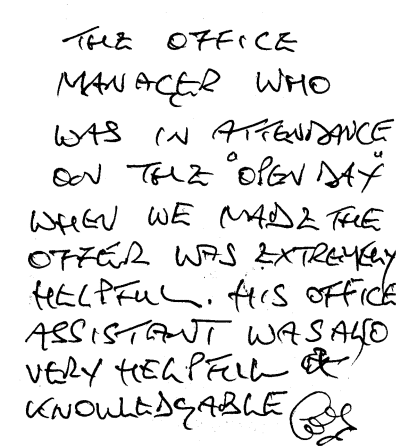 THE OFFICE
MANAGER WHO
WAS IN ATTENDANCE
ON THE "OPEN DAY"
WHEN WE MADE THE
OFFER WAS EXTREMELY
HELPFUL. HIS OFFICE
ASSISTANT WAS ALSO
VERY HELPFUL &
KNOWLEDGABLE